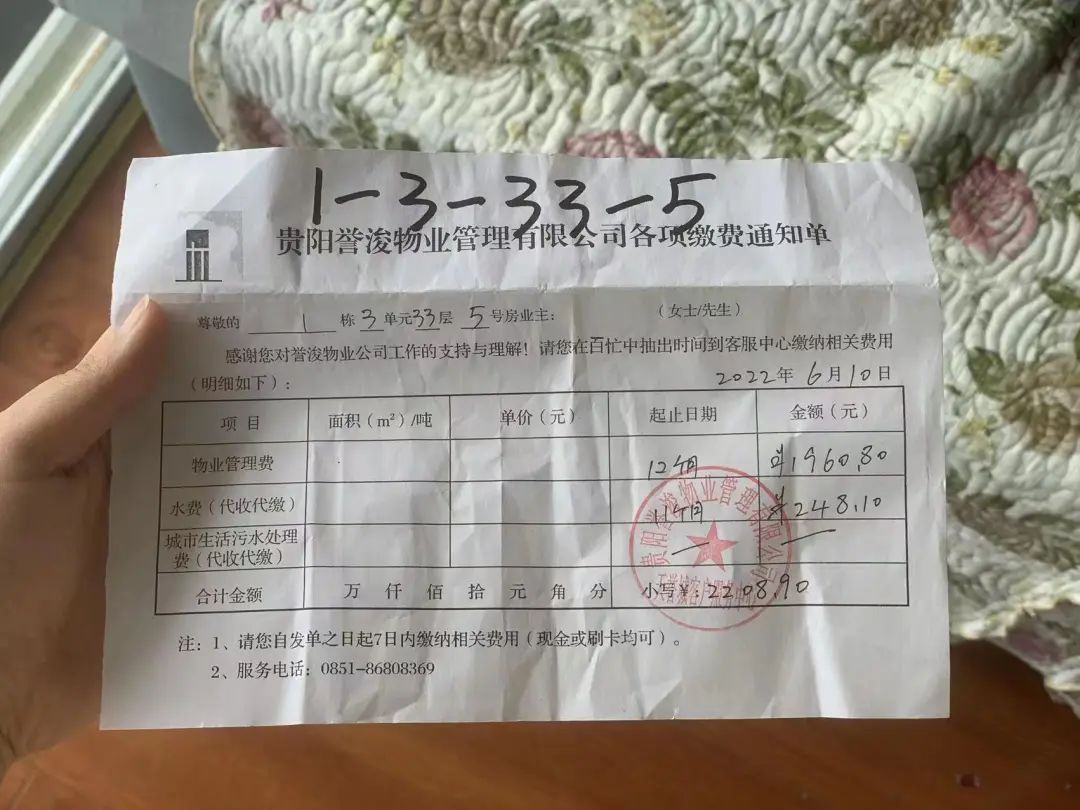 1-3-33-5
贵阳誉浚物业管理有限公司各项缴费通知单
尊敬的 1 栋 3 单元 33 层 5 号房业主： （女士/先生）
感谢您对誉浚物业公司工作的支持与理解！请您在百忙中抽出时间到客服中心缴纳相关费用
（明细如下）： 2022年 6月10日
项 目 面积（m²）/吨 单价（元） 起止日期 金额（元）
物业管理费 12个月 ¥1960.80
水费（代收代缴） 11个月 ¥248.10
城市生活污水处理
费（代收代缴） — —
合计金额 万 仟 佰 拾 元 角 分 小写¥：2208.90
贵阳誉浚物业管理有限公司
客户服务中心
注：1、请您自发单之日起7日内缴纳相关费用（现金或刷卡均可）。
2、服务电话：0851-86808369